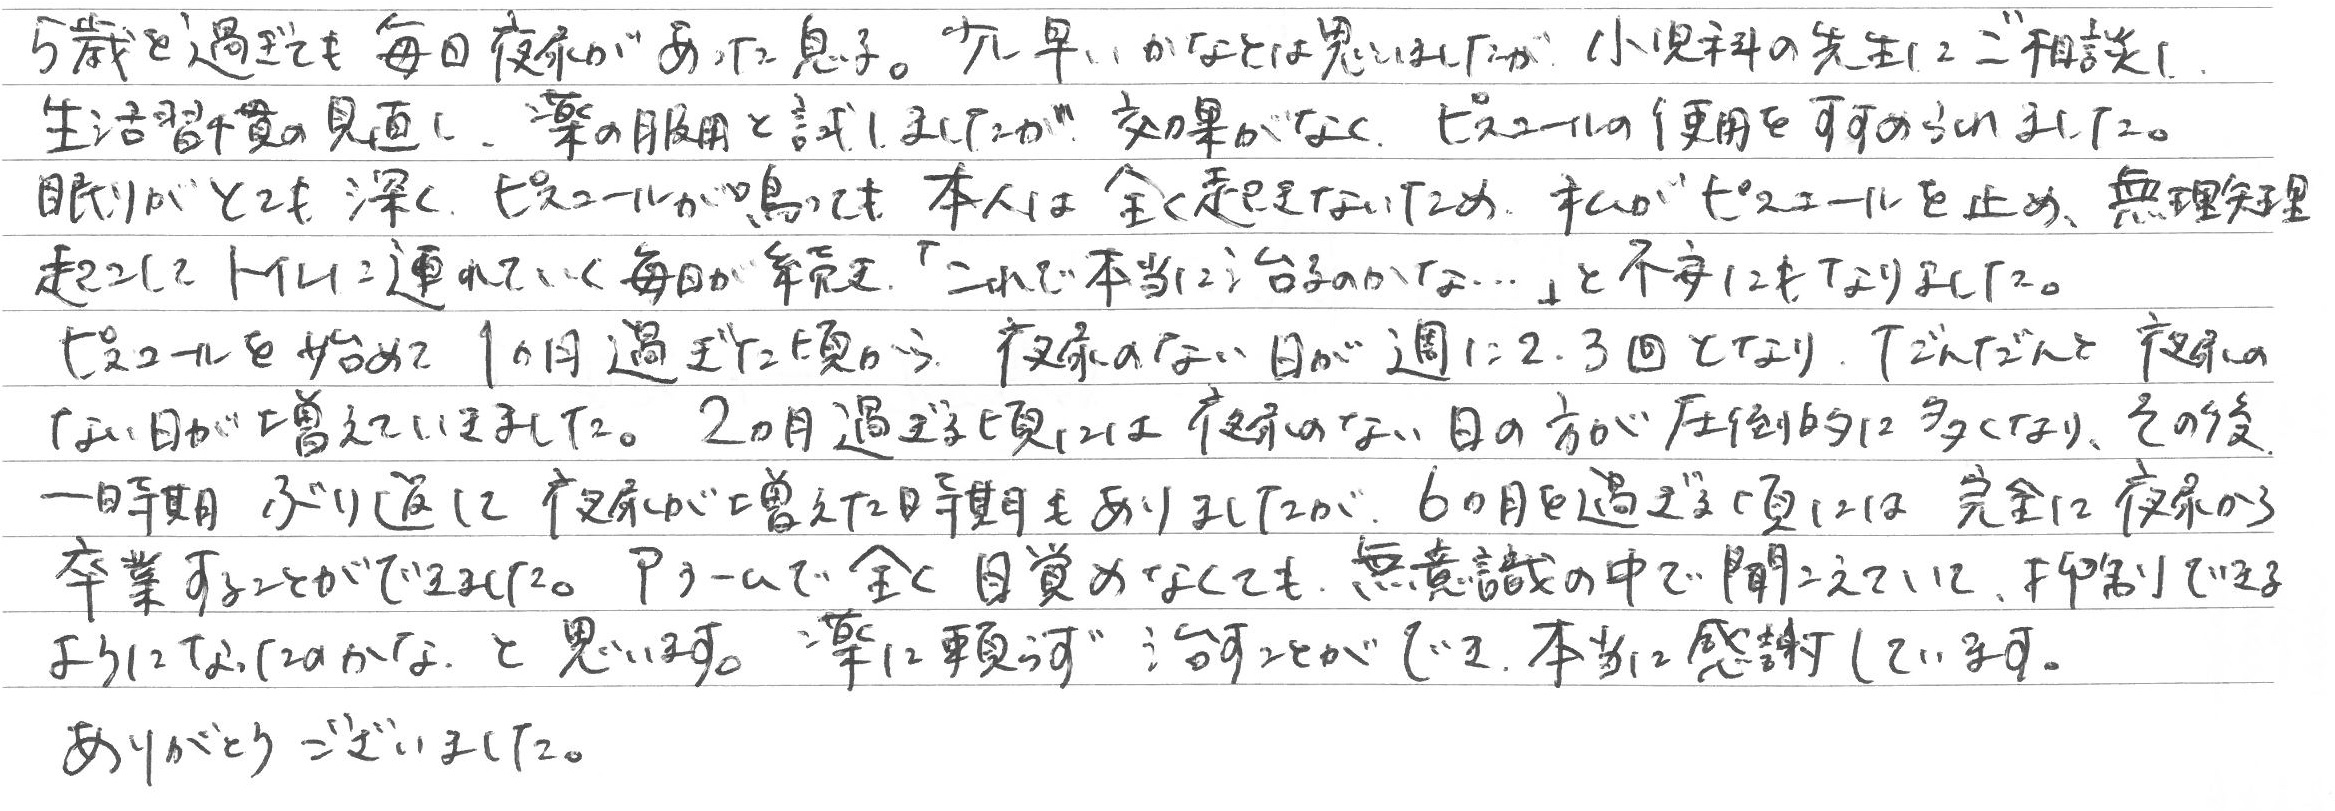 5歳を過ぎても毎日夜尿があった息子。少し早いかなとは思いましたが、小児科の先生にご相談し、
生活習慣の見直し、薬の服用と試しましたが、効果がなく、ピスコールの使用をすすめられました。
眠りがとても深く、ピスコールが鳴っても本人は全く起きないため、私がピスコールを止め、無理矢理
起こしてトイレに連れていく毎日が続き、「これで本当に治るのかな…」と不安にもなりました。
ピスコールを始めて1カ月過ぎた頃から、夜尿のない日が週に2.3回となり、だんだんと夜尿の
ない日が増えていきました。2カ月過ぎる頃には夜尿のない日の方が圧倒的に多くなり、その後、
一時期ぶり返して夜尿が増えた時期もありましたが、6カ月を過ぎる頃には完全に夜尿から
卒業することができました。アラームで全く目覚めなくても、無意識の中で聞こえていて、抑制できる
ようになったのかな、と思います。薬に頼らず治すことができ、本当に感謝しています。
ありがとうございました。